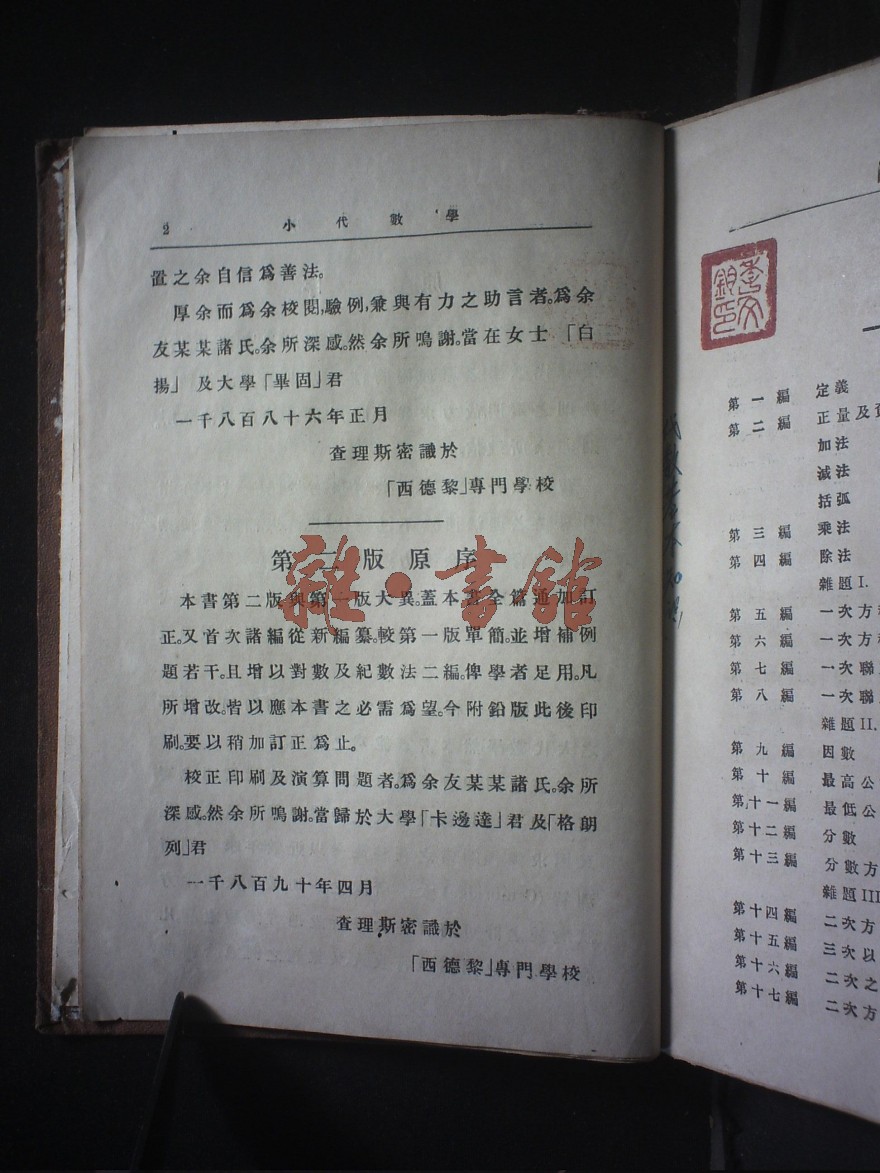 2 小代數學
置之余自信爲善法。
厚余而爲余校閱,驗例,兼與有力之助言者。爲余
友某某諸氏。余所深感。然余所鳴謝。當在女士「白
揚」及大學「畢固」君
一千八百八十六年正月
查理斯密識於
「西德黎」專門學校
第二版原序
本書第二版與第一版大異。蓋本書全篇通加訂
正。又首次諸編從新編纂。較第一版單簡。並增補例
題若干。且增以對數及紀數法二編。俾學者足用。凡
所增改。皆以應本書之必需爲望。今附鉛版此後印
刷。要以稍加訂正爲止。
校正印刷及演算問題者。爲余友某某諸氏。余所
深感。然余所鳴謝。當歸於大學「卡邊達」君及「格朗
列」君
一千八百九十年四月
查理斯密識於
「西德黎」專門學校
雜·書館
第一編 定義
第二編 正量及
加法
減法
括弧
第三編 乘法
第四編 除法
雜題 I.
第五編 一次方
第六編 一次方
第七編 一次聯
第八編 一次聯
雜題 II.
第九編 因數
第十編 最高公
第十一編 最低公
第十二編 分數
第十三編 分數方
雜題 III
第十四編 二次方
第十五編 三次以
第十六編 二次之
第十七編 二次方